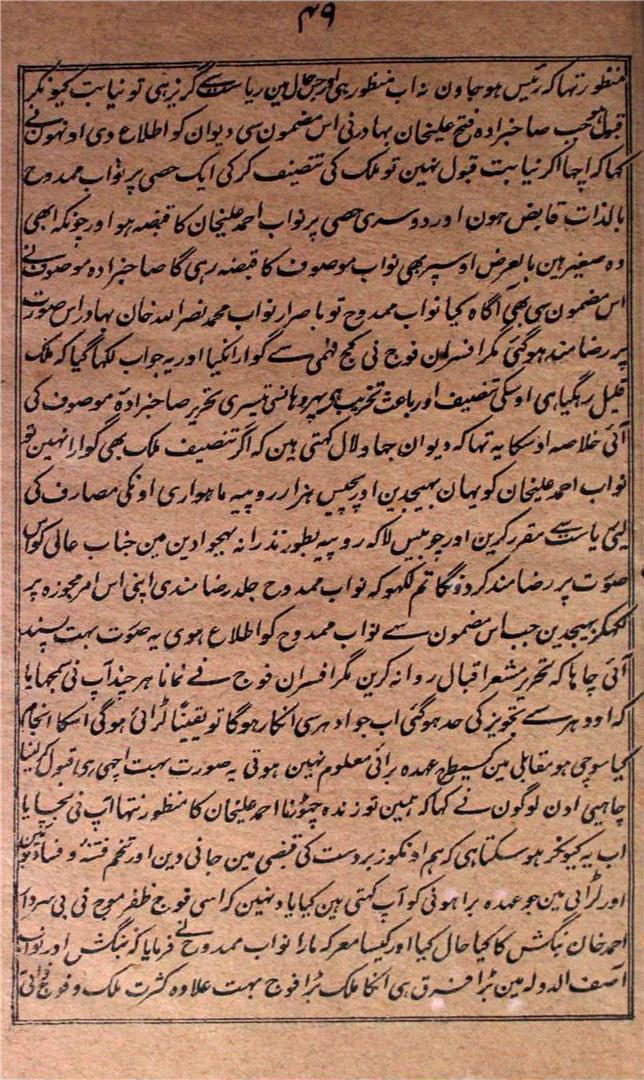 ۴۹
منظور تہا کہ رئیس ہوجاون نہ اب منظور ہی اور جس حال مین ریاست سے گریز ہی تو نیابت کیونکر
قبول جب صاحبزادہ فتح علیخان بہادر نی اس مضمون سی دیوان کو اطلاع دی اونہون نے
کہا کہ اچہا اگر نیابت قبول نہین تو ملک کی تنصیف کرکی ایک حصی پر نواب ممدوح
بالذات قابض ہون اور دوسری حصی پر نواب احمد علیخان کا قبضہ ہو اور چونکہ ابھی
وہ صغیر ہین بالعرض اوسپر بھی نواب موصوف کا قبضہ رہی گا صاحبزادہ موصوف نے
اس مضمون سی بھی آگاہ کیا نواب ممدوح تو باصرار نواب محمد نصر اللہ خان بہادر اس صورت
پر رضامند ہوگئی مگر افسران فوج نی کج فہمی سے گوارا نکیا اور یہ جواب لکہا گیا کہ ملک
قلیل رہگیا ہی اوسکی تنصیف اور باعث تخریب ہی پہر وہانسی تیسری تحریر صاحبزادۂ موصوف کی
آئی خلاصہ اوسکا یہ تہا کہ دیوان جہاولال کہتی ہین کہ اگر تنصیف ملک بھی گوارا نہین تو
نواب احمد علیخان کو یہان بہیجدین اور پچیس ہزار روپیہ ماہواری اونکی مصارف کی
لیی ریاست سے مقرر کرین اور چوبیس لاکہ روپیہ بطور نذرانہ بہجوادین مین جناب عالی کو اس
صورت پر رضامند کردونگا تم لکہو کہ نواب ممدوح جلد رضامندی اپنی اس امر مجوزہ پر
لکہکر بہیجدین جب اس مضمون سے نواب ممدوح کو اطلاع ہوی یہ صورت بہت پسند
آئی چاہا کہ تحریر مشعر اقبال روانہ کرین مگر افسران فوج نے نمانا ہر چند آپ نی سمجہایا
کہ اودہر سے تجویز کی حد ہوگئی اب جو ادہر سی انکار ہوگا تو یقیناً لڑائی ہوگی اسکا انجام
کیا سوچی ہو مقابلی مین کسیطرح عہدہ برائی معلوم نہین ہوتی یہ صورت بہت اچہی ہی قبول کرلینا
چاہیی اون لوگون نے کہا کہ ہمین تو زندہ چہوڑنا احمد علیخان کا منظور نتہا آپ نی بچایا
اب یہ کیونکر ہوسکتا ہی کہ ہم اونکو زبردست کی قبضی مین جانی دین اور تخم فتنہ و فساد
اور لڑائی مین جو عہدہ برا ہونی کو آپ کہتی ہین کیا یاد نہین کہ اسی فوج ظفر موج نی بی سردار
احمد خان بنگش کا کیا حال کیا اور کیسا معرکہ مارا نواب ممدوح نے فرمایا کہ بنگش اور نواب
آصف الدولہ مین بڑا فرق ہی انکا ملک بڑا فوج بہت علاوہ کثرت ملک و فوج